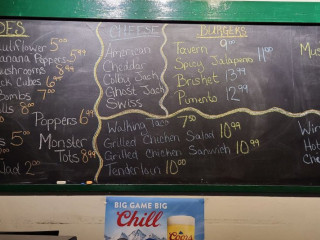 DES
Cauliflower 5.00
Banana Peppers 5.99
Mushrooms 6.99
Cubes 8.99
Bombs 7.00
8.00
Poppers 6.99
5.00
Monster
Tots 8.99
2.00
CHEESE
American
Cheddar
Colby Jack
Ghost Jack
Swiss
BURGERS
Tavern 9.00
Spicy Jalapeno 11.00
Brisket 13.99
Pimento 12.99
Walking Taco 7.50
Grilled Chicken Salad 10.99
Grilled Chicken Sandwich 10.99
Tenderloin 10.00
Mus
Win
Hot
Che
BIG GAME BIG
Chill
Coors